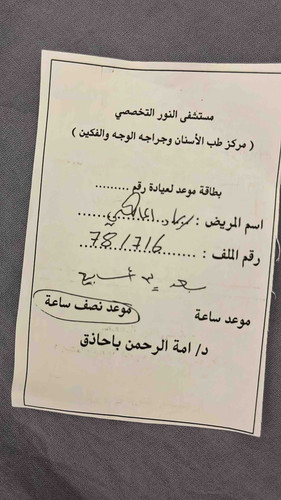 مستشفى النور التخصصي
( مركز طب الأسنان وجراحه الوجه والفكين )
بطاقة موعد لعيادة رقم ..........
اسم المريض :
رقم الملف : 781716
بعد ٣ أسابيع
موعد ساعة موعد نصف ساعة
د/ امة الرحمن باحاذق